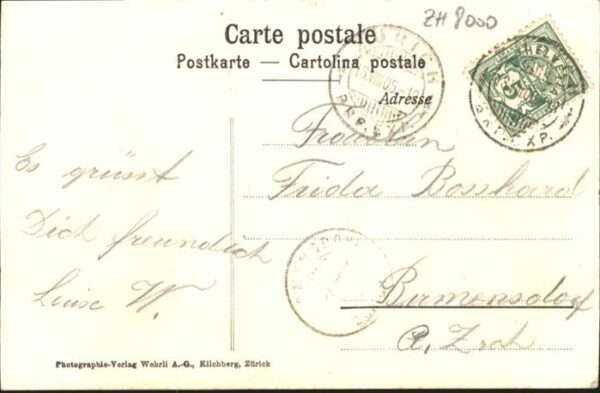 ZH 8000
Carte postale
Postkarte — Cartolina postale
Adresse
Es grüsst
Dich freundlich
Luise W.
Fräulein
Frida Bosshard
Birmensdorf
Photographie-Verlag Wehrli A.-G., Kilchberg, Zürich